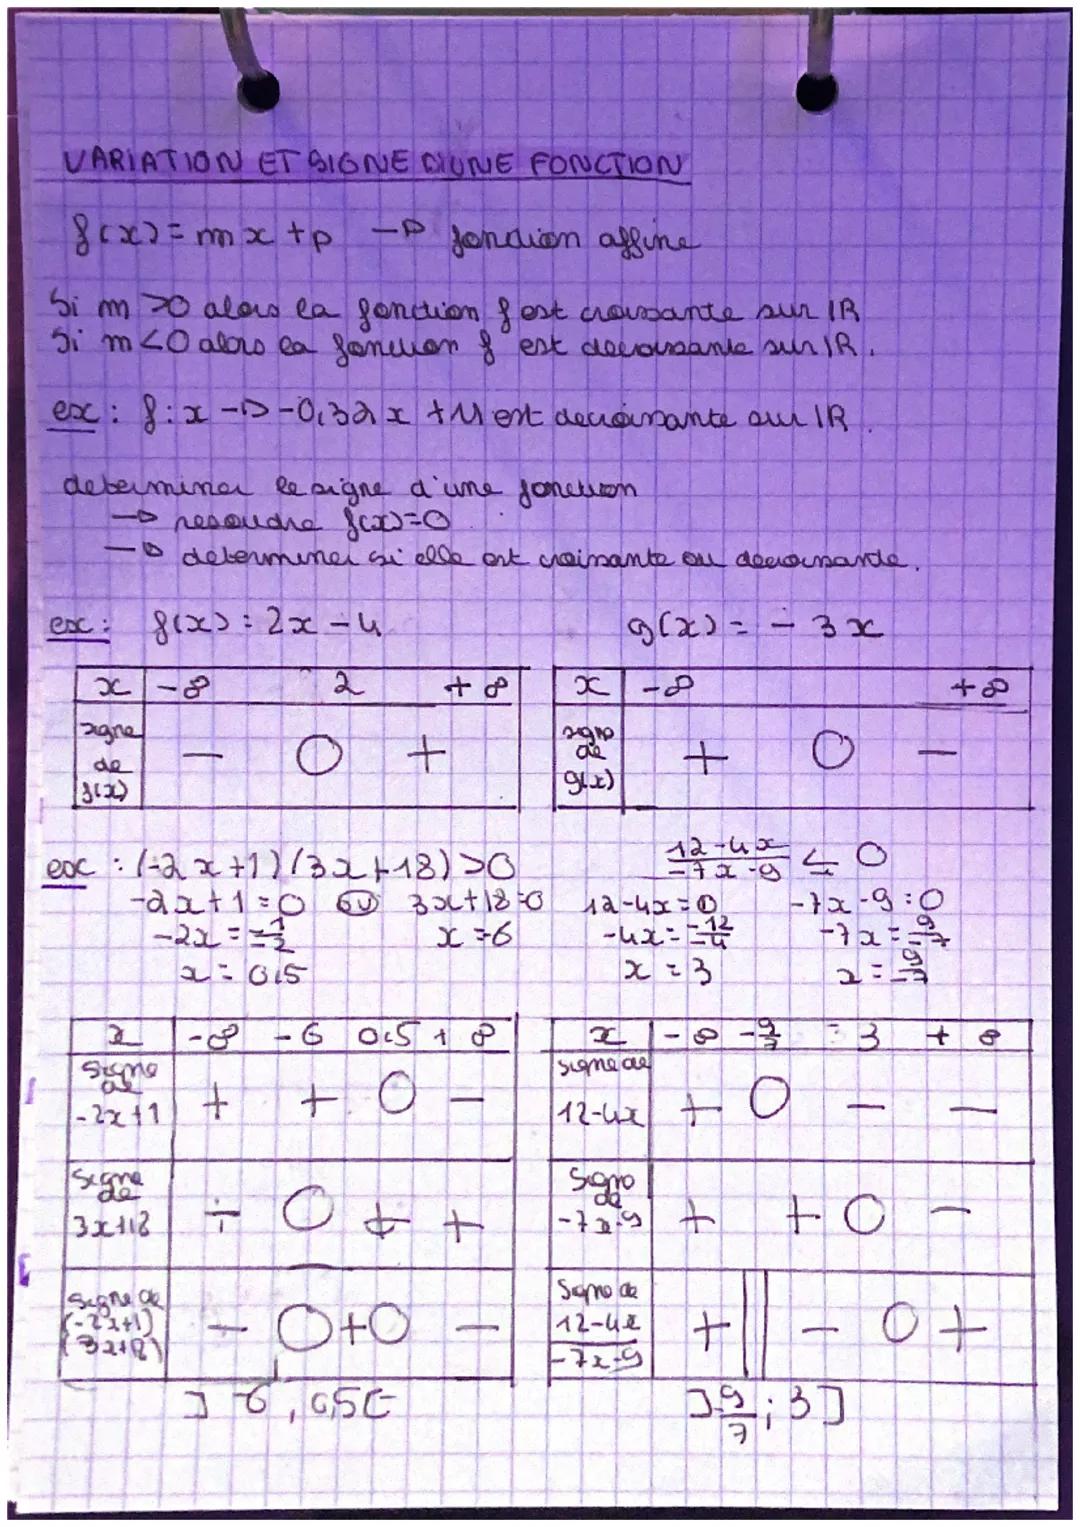 VARIATION ET SIGNE D'UNE FONCTION
f(x) = mx + p → fonction affine
Si m > 0 alors la fonction f est croissante sur IR
Si m < 0 alors la fonction f est decroissante sur IR.
ex : f : x → -0,32x + 11 est decroissante sur IR.
determiner le signe d'une fonction
→ resoudre f(x)=0
→ determiner si elle est croissante ou decroissante.
ex : f(x) = 2x - 4 g(x) = - 3x
x -∞ 2 +∞ x -∞ +∞
signe de f(x) - 0 + signe de g(x) + 0 -
ex : (-2x+1)(3x+18)>0 12-4x/-7x-9 ≤ 0
-2x+1=0 ou 3x+18=0 12-4x=0 -7x-9=0
-2x = -1/-2 x=6 -4x = -12/-4 -7x = 9/-7
x = 0,5 x = 3 x = 9/-7
x -∞ -6 0,5 +∞ x -∞ -9/7 3 +∞
signe de -2x+1 + + 0 - signe de 12-4x + 0 - -
signe de 3x+18 ÷ 0 + + signe de -7x-9 + + 0 -
signe de (-2x+1) (3x+18) - 0 + 0 - signe de 12-4x/-7x-9 + || - 0 +
]-6, 0,5[ ]-9/7 ; 3]